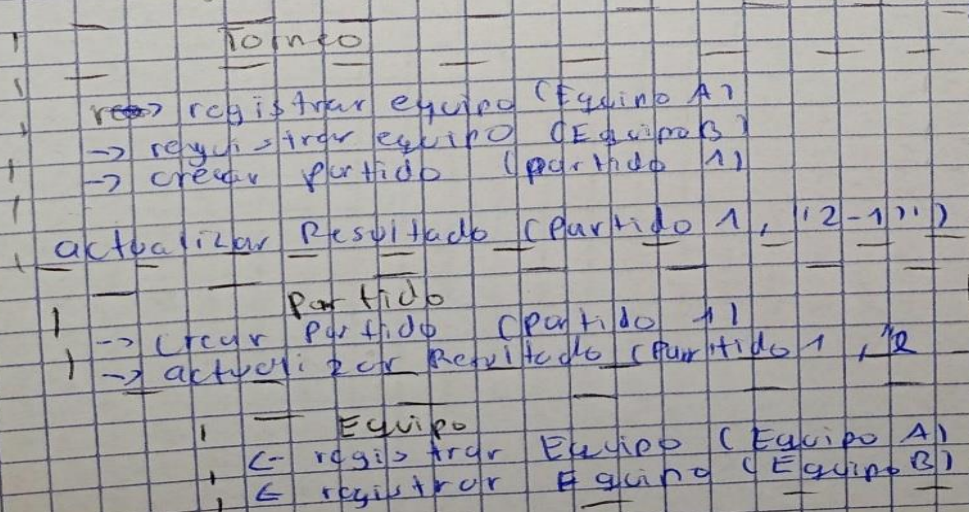 Torneo
→ registrar equipo (Equipo A)
→ registrar equipo (Equipo B)
→ crear partido (partido 1)
actualizar Resultado (Partido 1, "2-1")
Partido
→ crear partido (partido 1)
→ actualizar Resultado (Partido 1, "2
Equipo
← registrar Equipo (Equipo A)
← registrar Equipo (Equipo B)